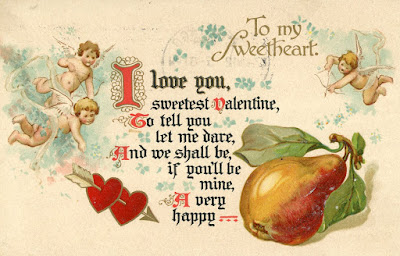 To my
Sweetheart.
I love you,
sweetest Valentine,
To tell you
let me dare,
And we shall be,
if you'll be
mine,
A very
happy